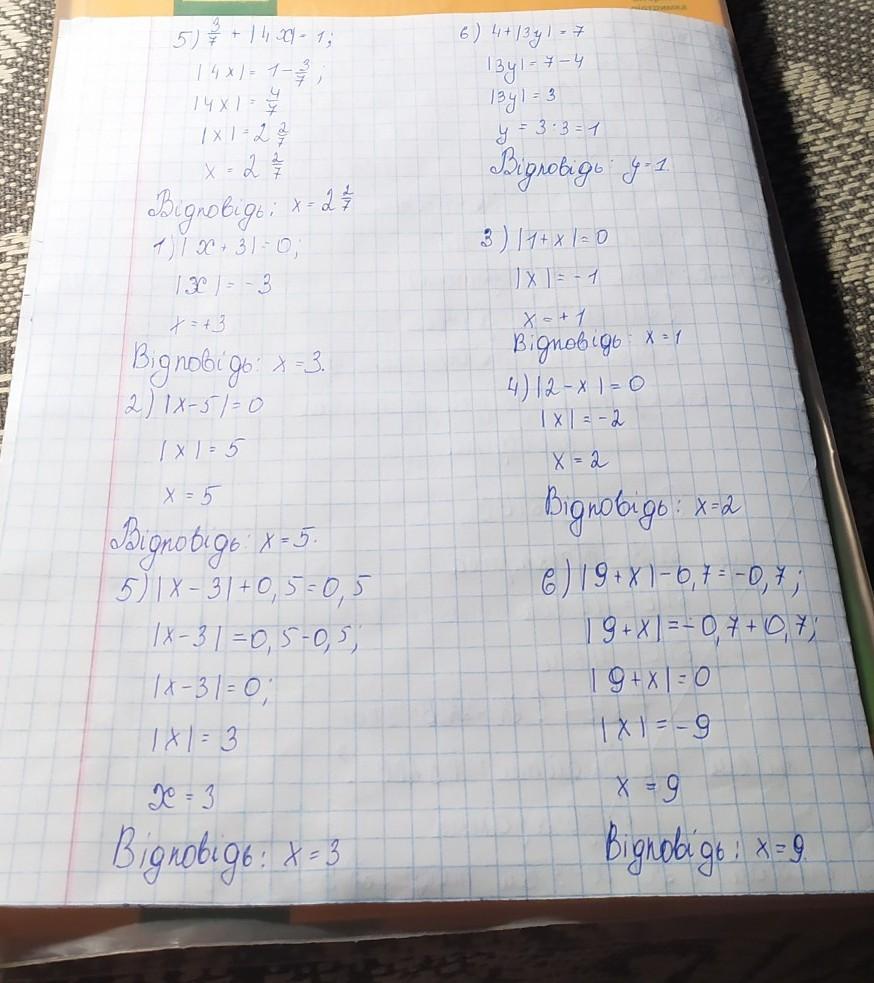 підтримка
5) 3/7 + |4x| = 1;
|4x| = 1 - 3/7;
|4x| = 4/7
|x| = 2 2/7
x = 2 2/7
Відповідь: x = 2 2/7
1) |x + 3| = 0;
|x| = - 3
x = +3
Відповідь: x = 3.
2) |x - 5| = 0
|x| = 5
x = 5
Відповідь: x = 5.
5) |x - 3| + 0,5 = 0,5
|x - 3| = 0,5 - 0,5;
|x - 3| = 0;
|x| = 3
x = 3
Відповідь: x = 3
6) 4 + |3y| = 7
|3y| = 7 - 4
|3y| = 3
y = 3 : 3 = 1
Відповідь: y = 1.
3) |1 + x| = 0
|x| = - 1
x = + 1
Відповідь: x = 1
4) |2 - x| = 0
|x| = - 2
x = 2
Відповідь: x = 2
6) |9 + x| - 0,7 = - 0,7;
|9 + x| = - 0,7 + 0,7;
|9 + x| = 0
|x| = - 9
x = 9
Відповідь: x = 9.